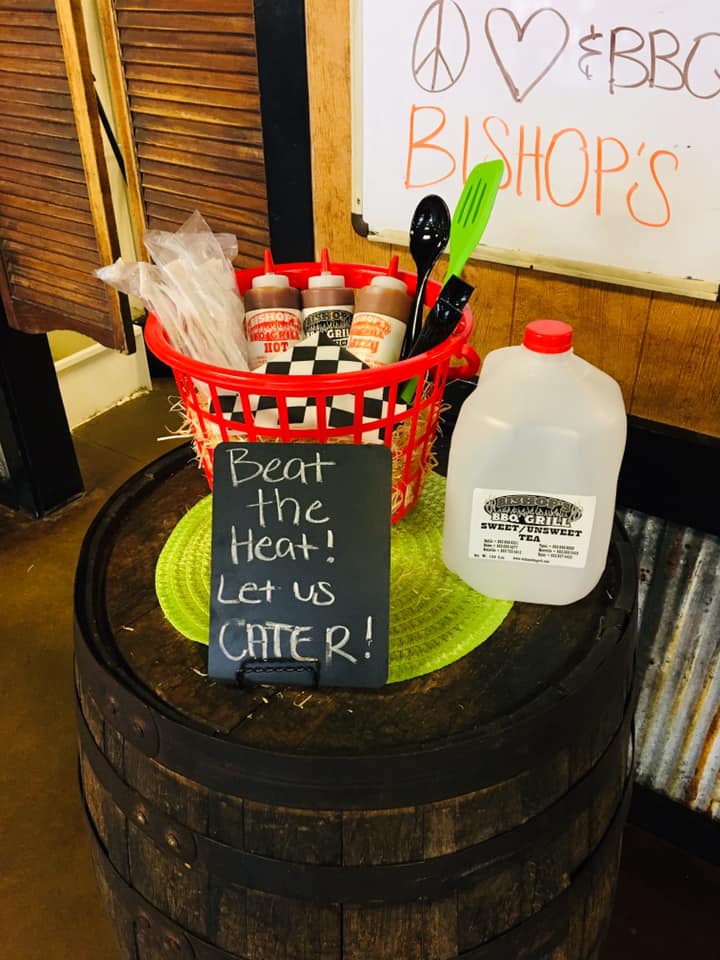 & BBQ
BISHOP'S
BISHOP'S
BBQ GRILL
HOT
BBQ GRILL
Beat
the
Heat!
Let us
CATER!
BISHOP'S
BBQ GRILL
SWEET/UNSWEET
TEA